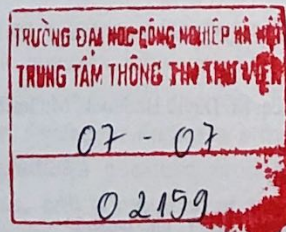 TRƯỜNG ĐẠI HỌC CÔNG NGHIỆP HÀ NỘI
TRUNG TÂM THÔNG TIN THƯ VIỆN
07 - 07
02159